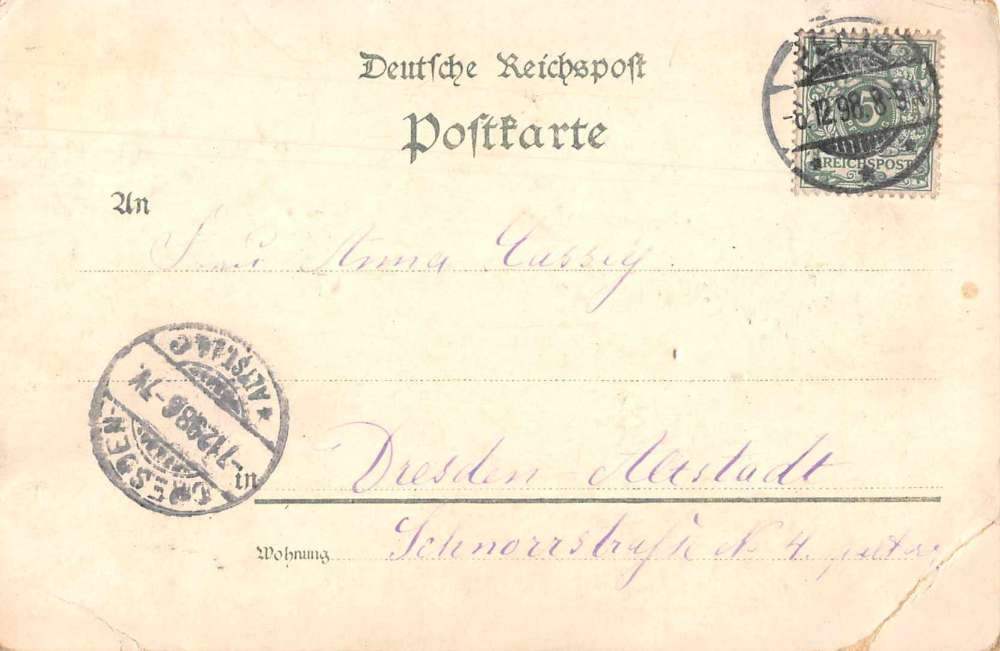 Deutsche Reichspost
Postkarte
-6.12.98. 8-9N.
5
REICHSPOST
An
Frau Anna
DRESDEN-
-7.12.98. 6-7V.
* ALTST. 14 c
in Dresden-Altstadt
Wohnung Schnorrstraße No 4.